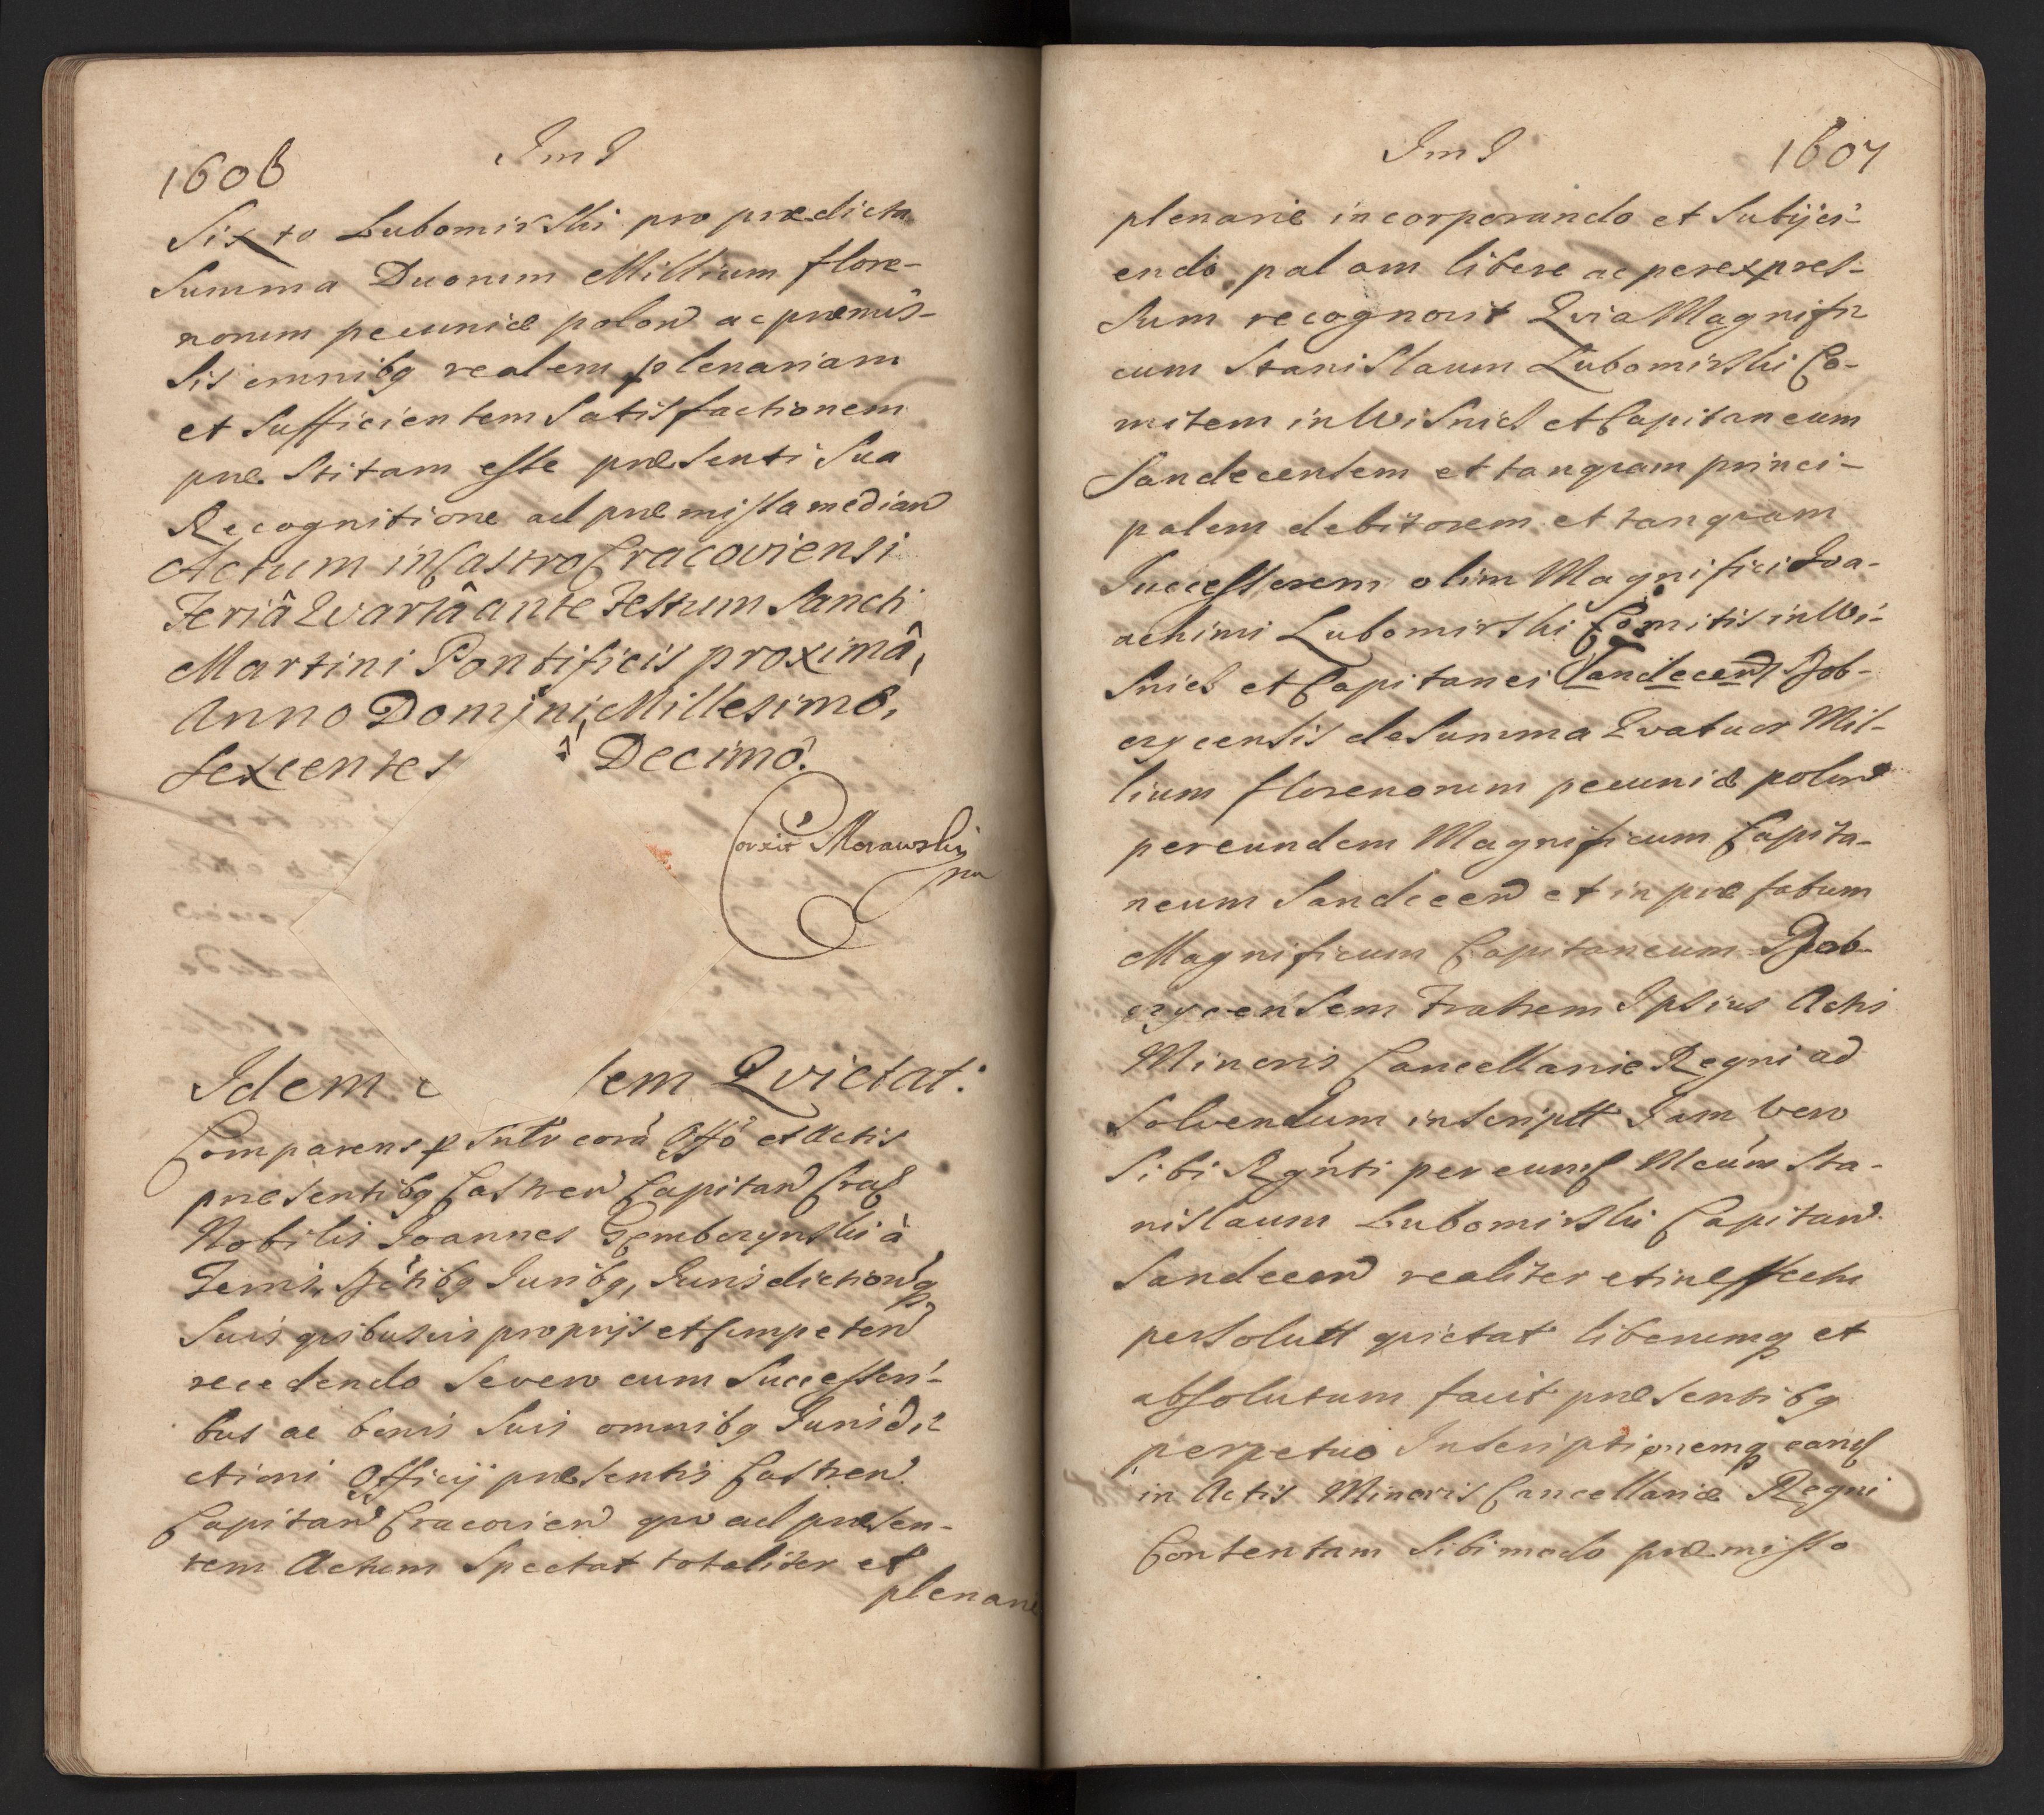 1606
Im I
Sixto Lubomirski pro prædicta
Summa Duorum Millium flore-
norum pecuniæ polon ac præmis-
sis omnibq realem plenariam
et Sufficientem Satisfactionem
præstitam esse præsenti Sua
Recognitione ad præmissa median
Actum in Castro Cracoviensi
Feriâ Qvartâ ante Festum Sancti
Martini Pontificis proximâ,
Anno Domini Millesimô,
Sexcentes Decimô.
Corxit Morawski
mp
Idem tem Qvietat:
Comparens corã Offô et Actis
præsentibq Castren Capitan Crac
Nobilis Joannes Gemborzynski à
Juribq, Jurisdictionq
Suis qvibusvis proprijs et Competen
recedendo Se vero cum Successori-
bus ac bonis Suis omnibq Jurisdi-
ctioni Officij præsentis Castren
Capitan Cracovien qvo ad præsen-
tem Actum Spectat totaliter et
plenarie
Im I
1607
plenarie incorporando et Subijci-
endo palam libere ac per expres-
sum recognovit Qvia Magnifi-
cum Stanislaum Lubomirski Co-
mitem in Wisnicz et Capitaneum
Sandecensem et tanqvam princi-
palem debitorem et tanqvam
Successorem olim Magnifici Joa-
achimi Lubomirski Comitis in Wi-
snicz et Capitanei Sandecen Dob-
czycensis de Summa Qvatuor Mil-
lium florenorum pecuniæ polon
per eundem Magnificum Capita-
neum Sandecen et in præfatum
Magnificum Capitaneum Dob-
czycensem Fratrem Ipsius Actis
Minoris Cancellariæ Regni ad
Solvendum inscriptt Jam vero
Sibi Rgnti per eund Mcum Sta-
nislaum Lubomirski Capitan
Sandecen realiter et in effectu
persolutt qvietat liberumq et
absolutum facit præsentibq
perpetuo Inscriptionemq eand
in Actis Minoris Cancellariæ Regni
Contentam Sibi modo præmisso